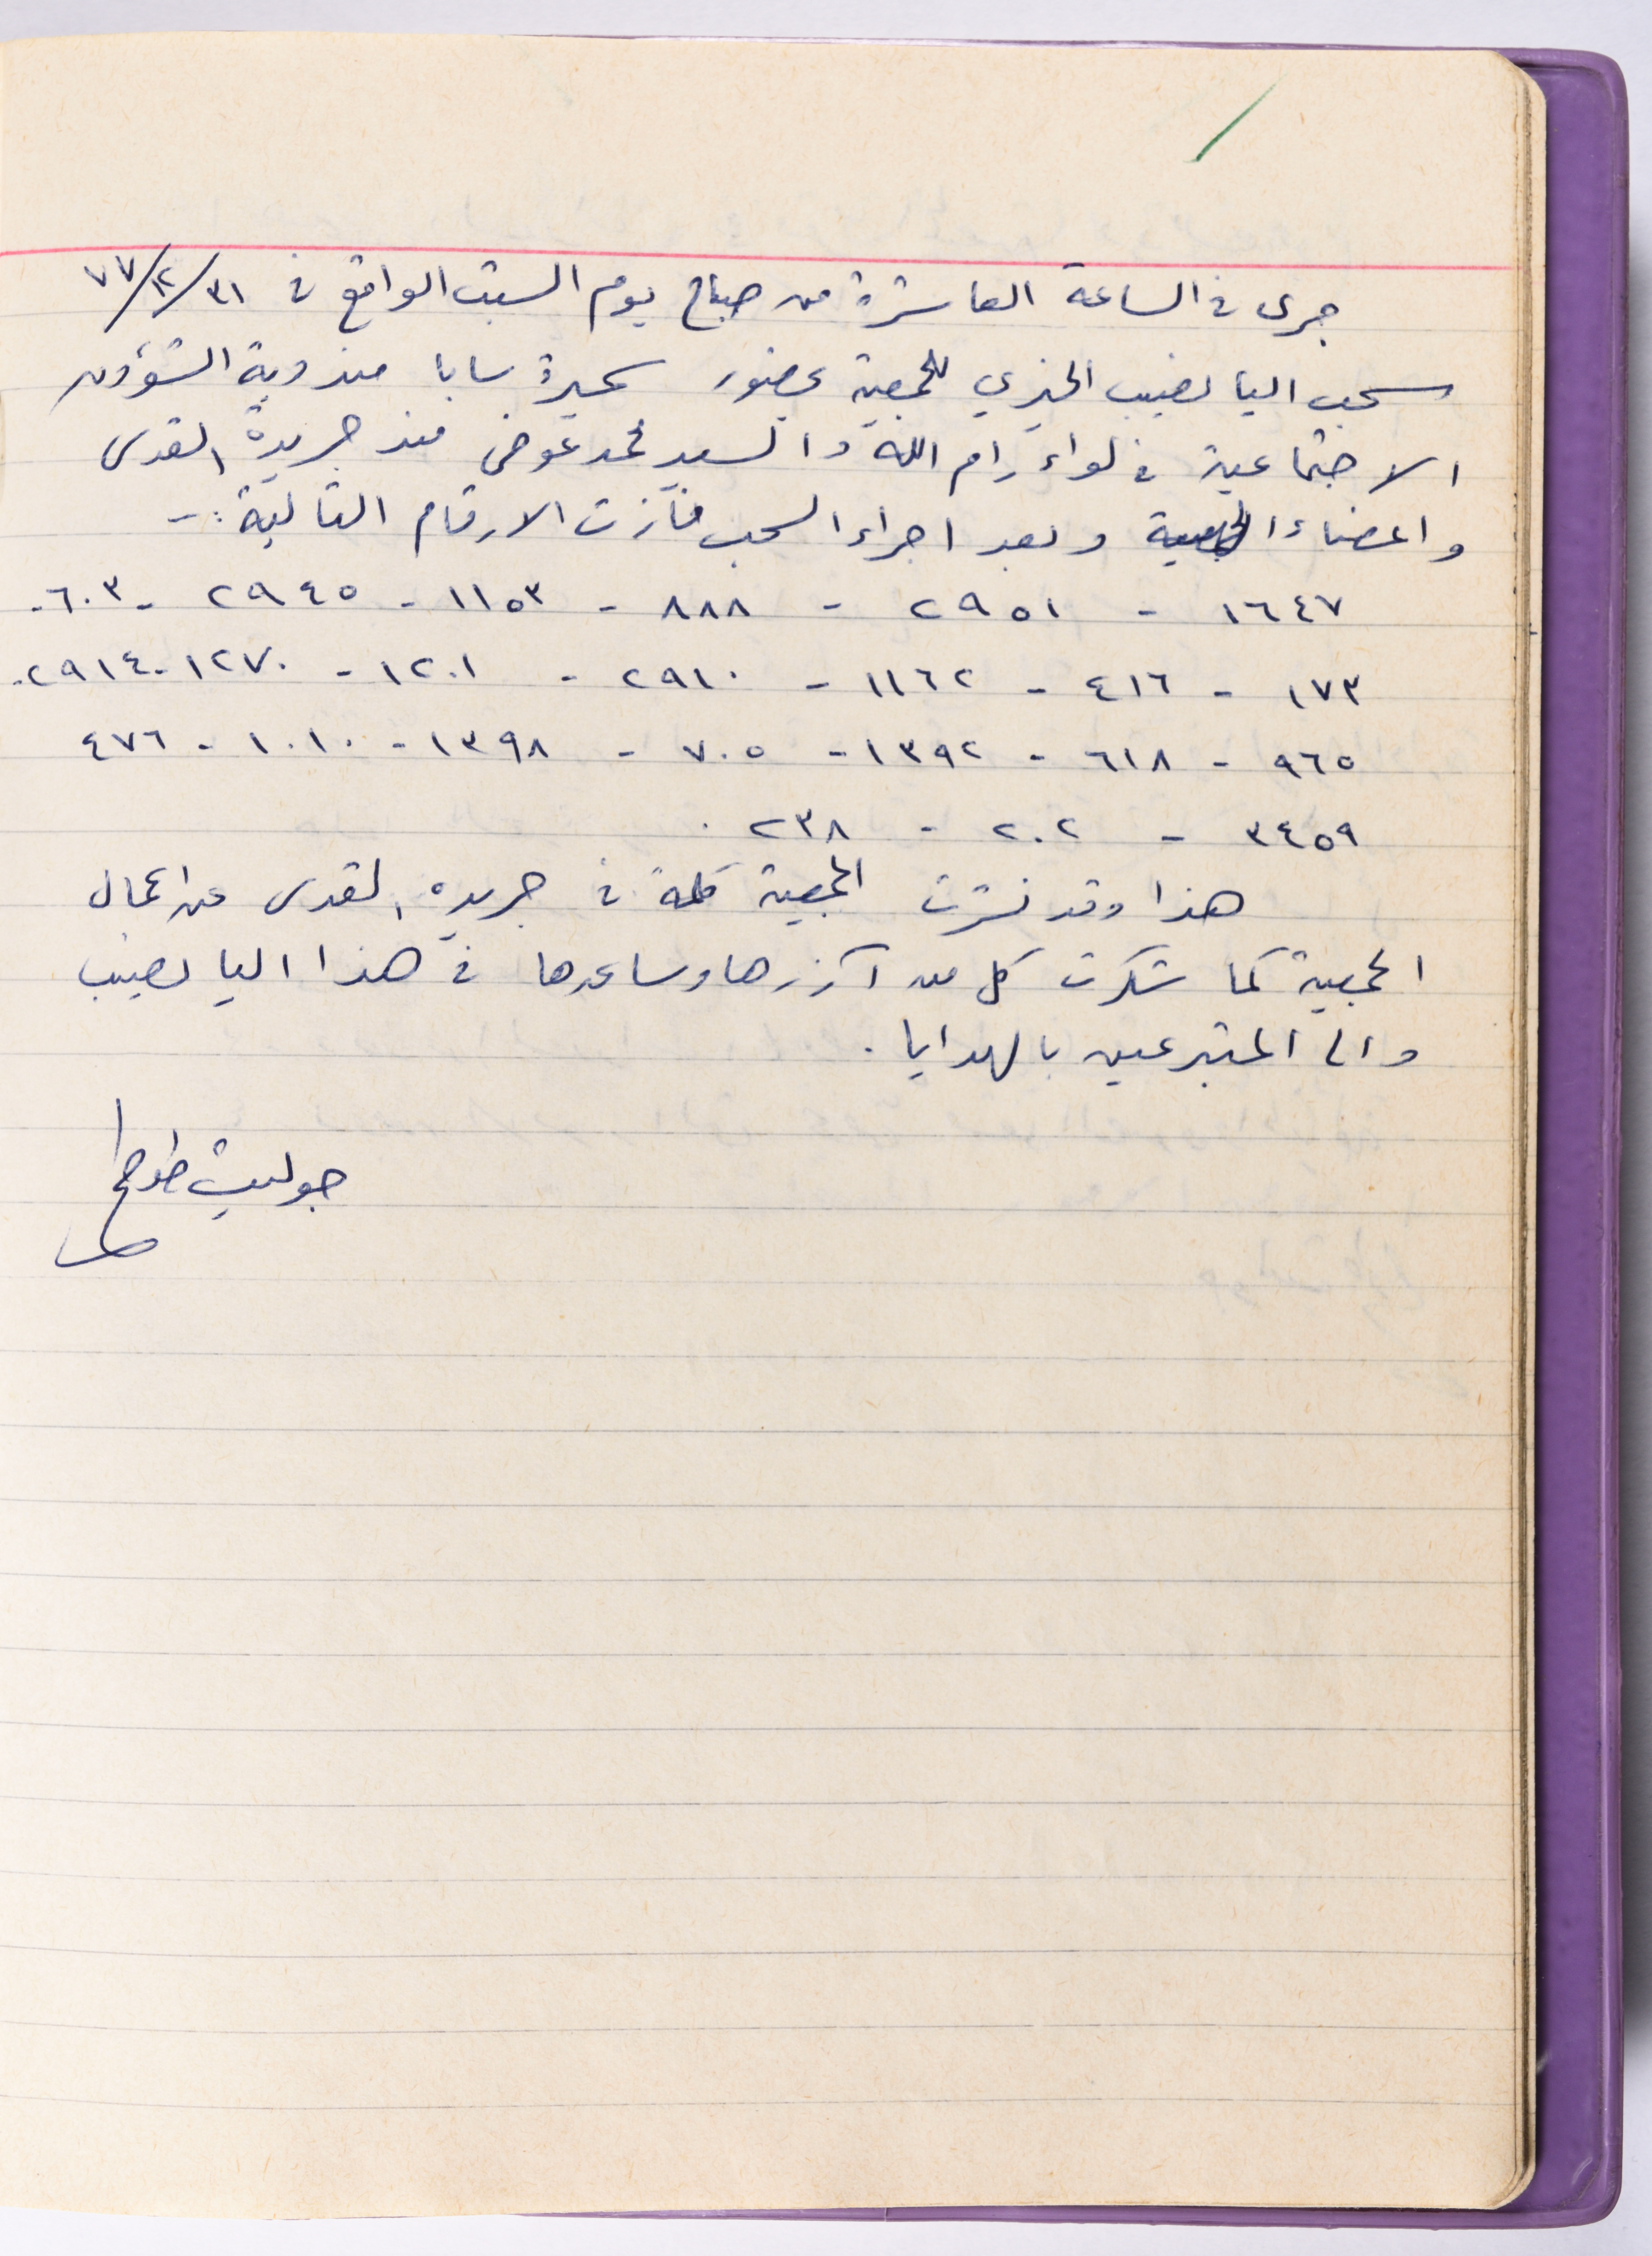 جرى في الساعة العاشرة من صباح يوم السبت الواقع في ٣١/١٢/٧٧
سحب اليانصيب الخيري للجمعية بحضور سميرة سابا مندوبة الشؤون
الاجتماعية في لواء رام الله والسيد محمد عوض من جريدة القدس
واعضاء الجمعية وبعد اجراء السحب فازت الارقام التالية :-
١٦٤٧ - ٢٩٥١ - ٨٨٨ - ١١٥٣ - ٢٩٤٥ - ٦٠٣ -
١٧٣ - ٤١٦ - ١١٦٢ - ٢٩١٠ - ١٢٠١ - ١٢٧٠ - ٢٩١٤ -
٩٦٥ - ٦١٨ - ١٣٩٢ - ٧٠٥ - ١٣٩٨ - ١٠١٠ - ٤٧٦
٣٤٥٩ - ٢٠٢ - ٢٣٨ .
هذا وقد نشرت الجمعية كلمة في جريدة القدس عن اعمال
الجمعية كما شكرت كل من آزرها وساعدها في هذا اليانصيب
والى المتبرعين بالهدايا .
جولييت